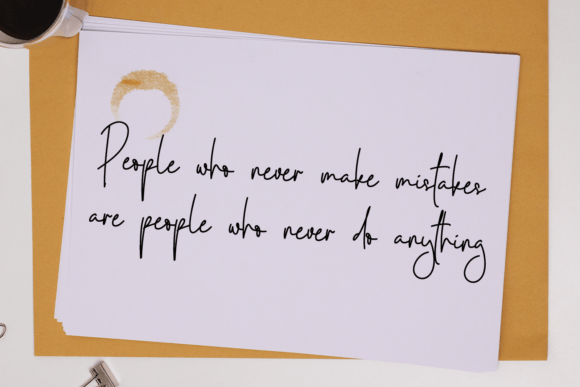 People who never make mistakes
are people who never do anything